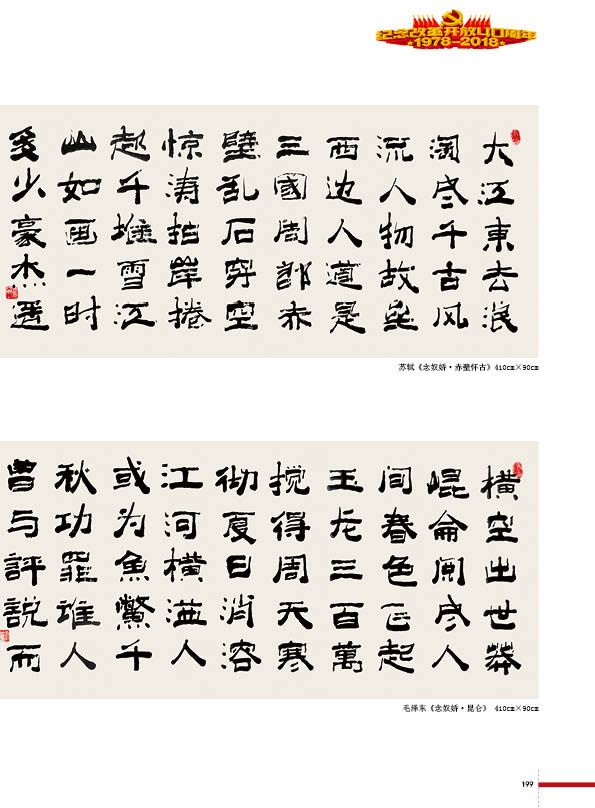 纪念改革开放40周年
1978-2018
大江東去浪
淘尽千古风
流人物故垒
西边人道是
三國周郎赤
壁乱石穿空
惊涛拍岸捲
起千堆雪江
山如画一时
多少豪杰遥
苏轼《念奴娇·赤壁怀古》410cm×90cm
横空出世莽
崐侖阅尽人
间春色飞起
玉龙三百萬
搅得周天寒
彻夏日消溶
江河横溢人
或为鱼鳖千
秋功罪谁人
曾与評說而
毛泽东《念奴娇·昆仑》 410cm×90cm
199